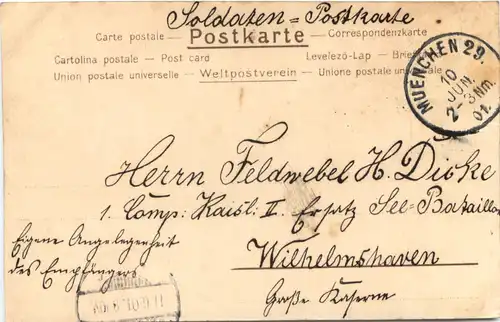 Soldaten = Postkarte
Carte postale — Postkarte — Correspondenzkarte
Cartolina postale — Post card Levelező-Lap — Brief
Union postale universelle — Weltpostverein — Unione postale universale
MUENCHEN 29.
10
JUN.
2-3Nm.
01.
Herrn Feldwebel H. Dicke
1. Comp: Kaisl: II. Ersatz See-Bataillon
Eigene Angelegenheit
des Empfängers
Wilhelmshaven
Große Kaserne